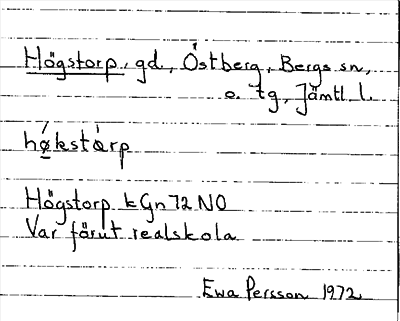 Högstorp, gd., Östberg, Bergs sn,
o. tg, Jämtl. l.
hǿ̱kstàrp
Högstorp kGn 72 NO
Var förut realskola
Ewa Persson 1972.